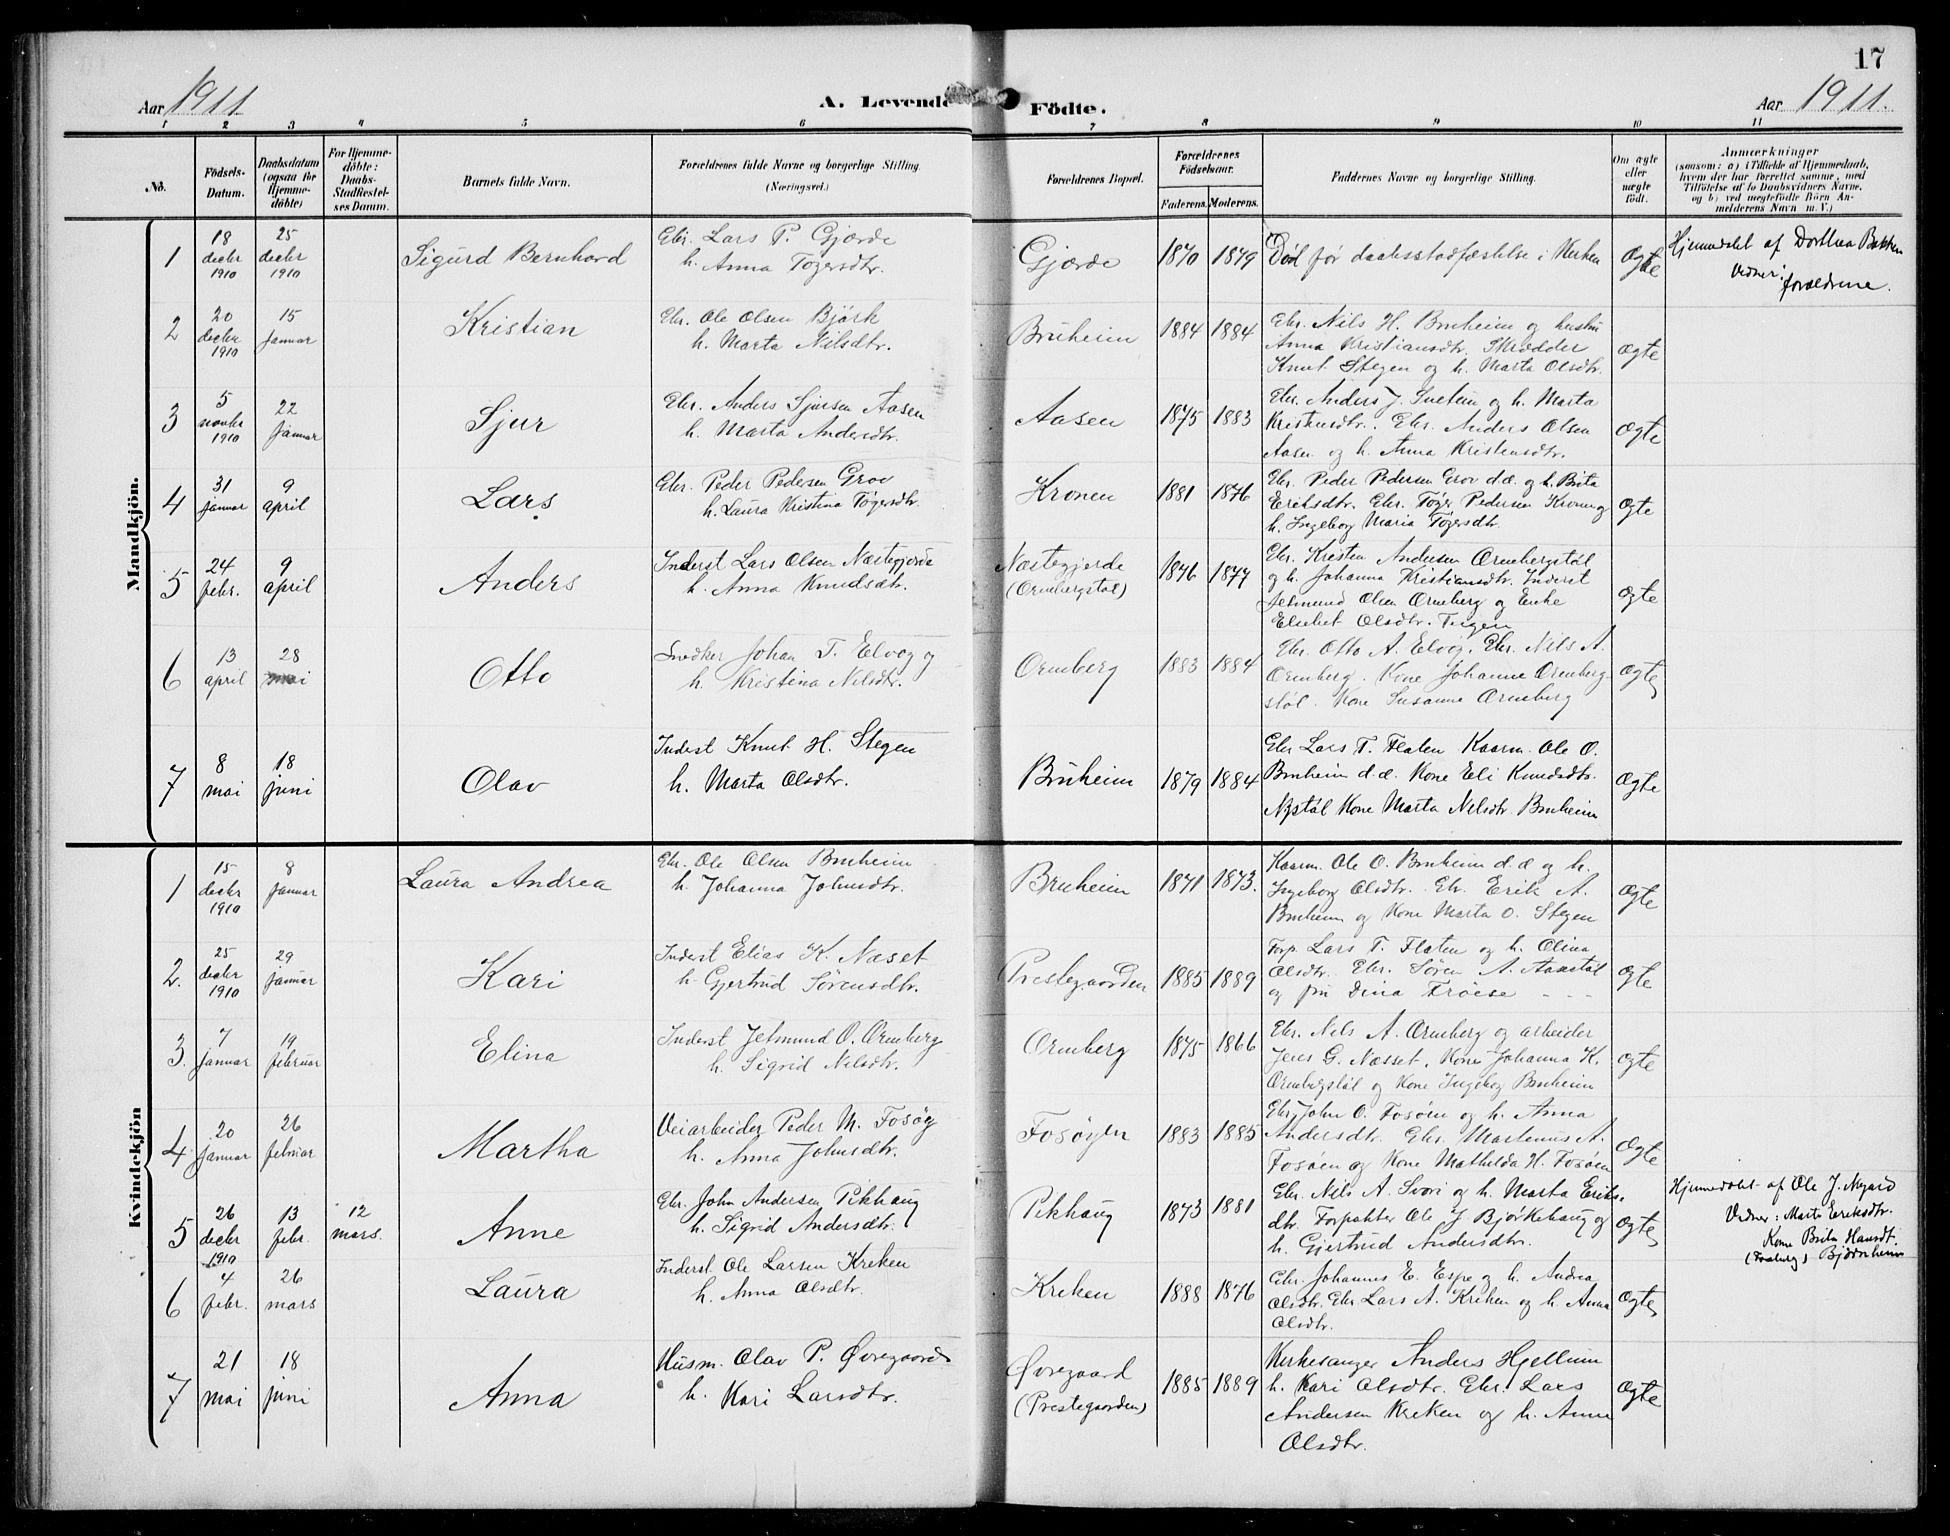 17
Aar 1911.
A. Levende Födte.
Aar 1911.
1 2 3 4 5 6 7 8 9 10 11
No.
Födsels-
Datum.
Daabsdatum
(ogsaa for
Hjemme-
döbte)
For Hjemme-
döbte:
Daabs-
Stadfæstel-
ses Datum.
Barnets fulde Navn.
Forældrenes fulde Navne og borgerlige Stilling.
(Næringsvei.)
Forældrenes Bopæl.
Forældrenes
Födselsaar.
Faderens. Moderens.
Faddernes Navne og borgerlige Stilling.
Om ægte
eller
uægte
födt.
Anmærkninger
(saasom: a) i Tilfælde af Hjemmedaab,
hvem der har forrettet samme, med
Tilföielse af to Daabsvidners Navne.
og b) ved uægtefödte Börn An-
melderens Navn m. V.)
Mandkjön.
1
18
decbr
1910
25
decbr
1910
Sigurd Bernhard
Gbr. Lars P. Gjærde
h. Anna Tøgersdtr.
Gjærde
1870 1879
Død før daabsstadfæstelse i Kirken
Ægte
Hjemmedøbt af Dorthea Bakken
Vidner:
forældrene.
2
20
decbr
1910
15
januar
Kristian
Gbr. Ole Olsen Bjørk
h. Marta Nilsdtr.
Bruheim
1884 1884
Gbr. Nils H. Bruheim og hustru
Anna Kristiansdtr. Skrædder
Knut Stegen og h. Marta Olsdtr.
Ægte
3
5
novbr
1910
22
januar
Sjur
Gbr. Anders Sjursen Aasen
h. Marta Andersdtr.
Aasen
1875 1883
Gbr. Anders J. Sveum og h. Marta
Kristensdtr. Gbr. Anders Olsen
Aasen og h. Anna Kristensdtr.
Ægte
4
31
januar
9
april
Lars
Gbr. Peder Pedersen Grov
h. Laura Kristina Tøgersdtr.
Kronen
1881 1876
Gbr. Peder Pedersen Grov d.æ. og h. Brita
Eriksdtr. Gbr. Tøger Pedersen Kronen og
h. Ingeborg Maria Tøgersdtr.
Ægte
5
24
febr.
9
april
Anders
Inderst Lars Olsen Næstegjerde
h. Anna Knudsdtr.
Næstegjerde
(Ormbergstøl)
1846 1877
Gbr. Kristen Andersen Ormbergstøl
og h. Johanna Kristiansdtr. Inderst
Jetmund Olsen Ormberg og Enke
Elisbet Olsdtr. Tugen
Ægte
6
13
april
28
mai
Otto
Snedker Johan T. Elvøg og
h. Kristina Nilsdtr.
Ormberg
1883 1884
Gbr. Otto A. Elvøg. Gbr. Nils A.
Ormberg. Kone Johanne Ormberg-
støl. Kone Susanne Ormberg
Ægte
7
8
mai
18
juni
Olav
Inderst Knut H. Stegen
h. Marta Olsdtr.
Bruheim
1879 1884
Gbr Lars T. Flaten Kaarm. Ole O.
Bruheim d.æ. Kone Eli Knudsdtr.
Nystøl Kone Marta Nilsdtr. Bruheim
Ægte
Kvindekjön
1
15
decbr
1910
8
januar
Laura Andrea
Gbr. Ole Olsen Bruheim
h. Johanna Johnsdtr.
Bruheim
1871 1873.
Kaarm. Ole O. Bruheim d.æ og h.
Ingeborg Olsdtr. Gbr. Erik A.
Bruheim og Kone Marta O. Stegen
Ægte
2.
25
decbr
1910
29
januar
Kari
Inderst Elias K. Næset
h. Gjertrud Sørensdtr.
Prestegaarden
1885 1889
Forp. Lars T. Flaten og h. Olina
Olsdtr. Gbr. Søren A. Aaastøl
og fru Dina Frøise - - -
Ægte
3.
7
januar
19
februar
Elina
Inderst Jetmund O. Ormberg
h. Sigrid Nilsdtr.
Ormberg
1875 1866
Gbr. Nils A. Ormberg og arbeider
Jens G. Næsset, Kone Johanna K.
Ormbergstøl og Kone Ingeborg Bruheim
Ægte
4
20
januar
26
februar
Martha
Veiarbeider Peder M. Fosøy
h. Anna Johnsdtr.
Fosøyen
1883 1885
Gbr. John O. Fosøen og h. Anna
Andersdtr. Gbr. Martinus A.
Fosøen og Kone Mathilda H. Fosøen
Ægte
5
26
decbr
1910
13
febr.
12
mars.
Anne
Gbr. John Andersen Pikhaug
h. Sigrid Andersdtr.
Pikhaug
1873 1881
Gbr. Nils A. Svori og h. Marta Eriks-
dtr. Forpakter Ole J Bjørkehaug og
h. Gjertrud Andersdtr.
Ægte
Hjemmedøbt af Ole J. Nygard
Vidner: Marta Eriksdtr.
Kone Brita Hansdt.
Bjørnheim
6
4
febr.
26
mars
Laura
Inderst Ole Larsen Kreken
h. Anna Olsdtr.
Kreken
1888 1876
Gbr. Johannes E. Espe og h. Andrea
Olsdtr. Gbr Lars A. Kreken og h. Anna
Olsdtr.
Ægte
7
21
mai
18
juni
Anna
Husm. Olav P. Øvregaard
h. Kari Larsdtr.
Øvregaard
(Prestegaarden)
1885 1889
Kirkesanger Anders Hjellum
h. Kari Olsdtr. Gbr. Lars
Andersen Kreken og h. Anna
Olsdtr.
Ægte